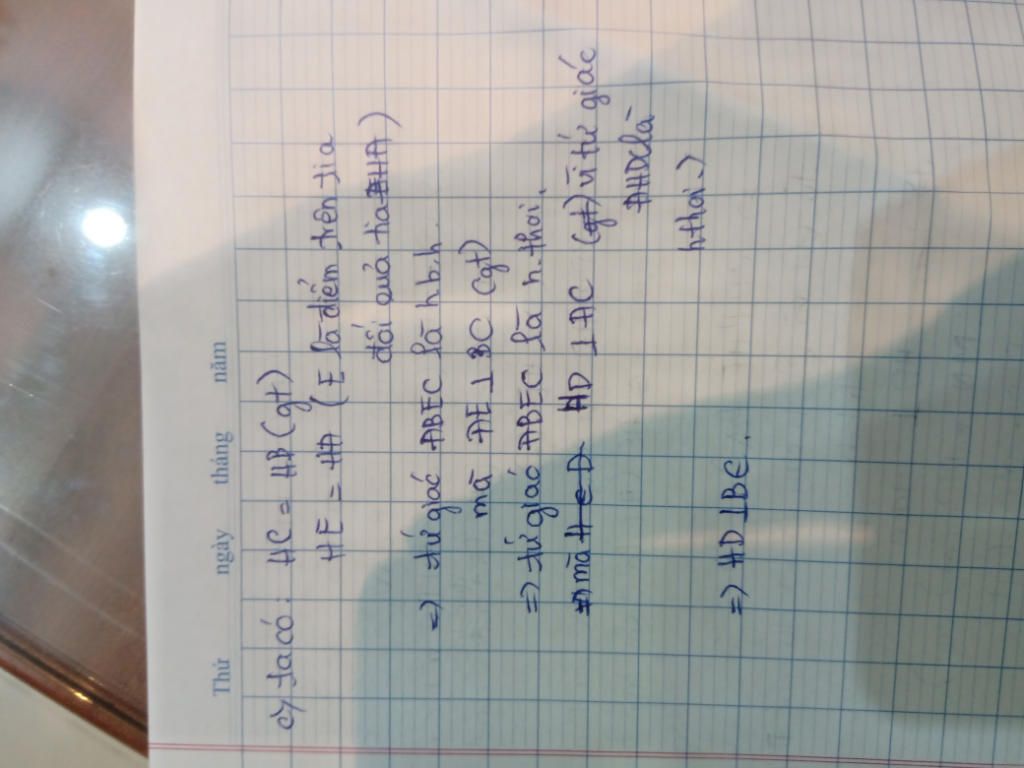 Thứ ngày tháng năm
c) ta có: HC = HB (gt)
HE = HA (E là điểm trên tia
đối của tia HA)
=) tứ giác ABEC là hbh.
mà AE ⊥ BC (gt)
=) tứ giác ABEC là h.thoi.
mà HD ⊥ AC (gt) vì tứ giác
AHDC là
hthoi.)
=) HD ⊥ BE.